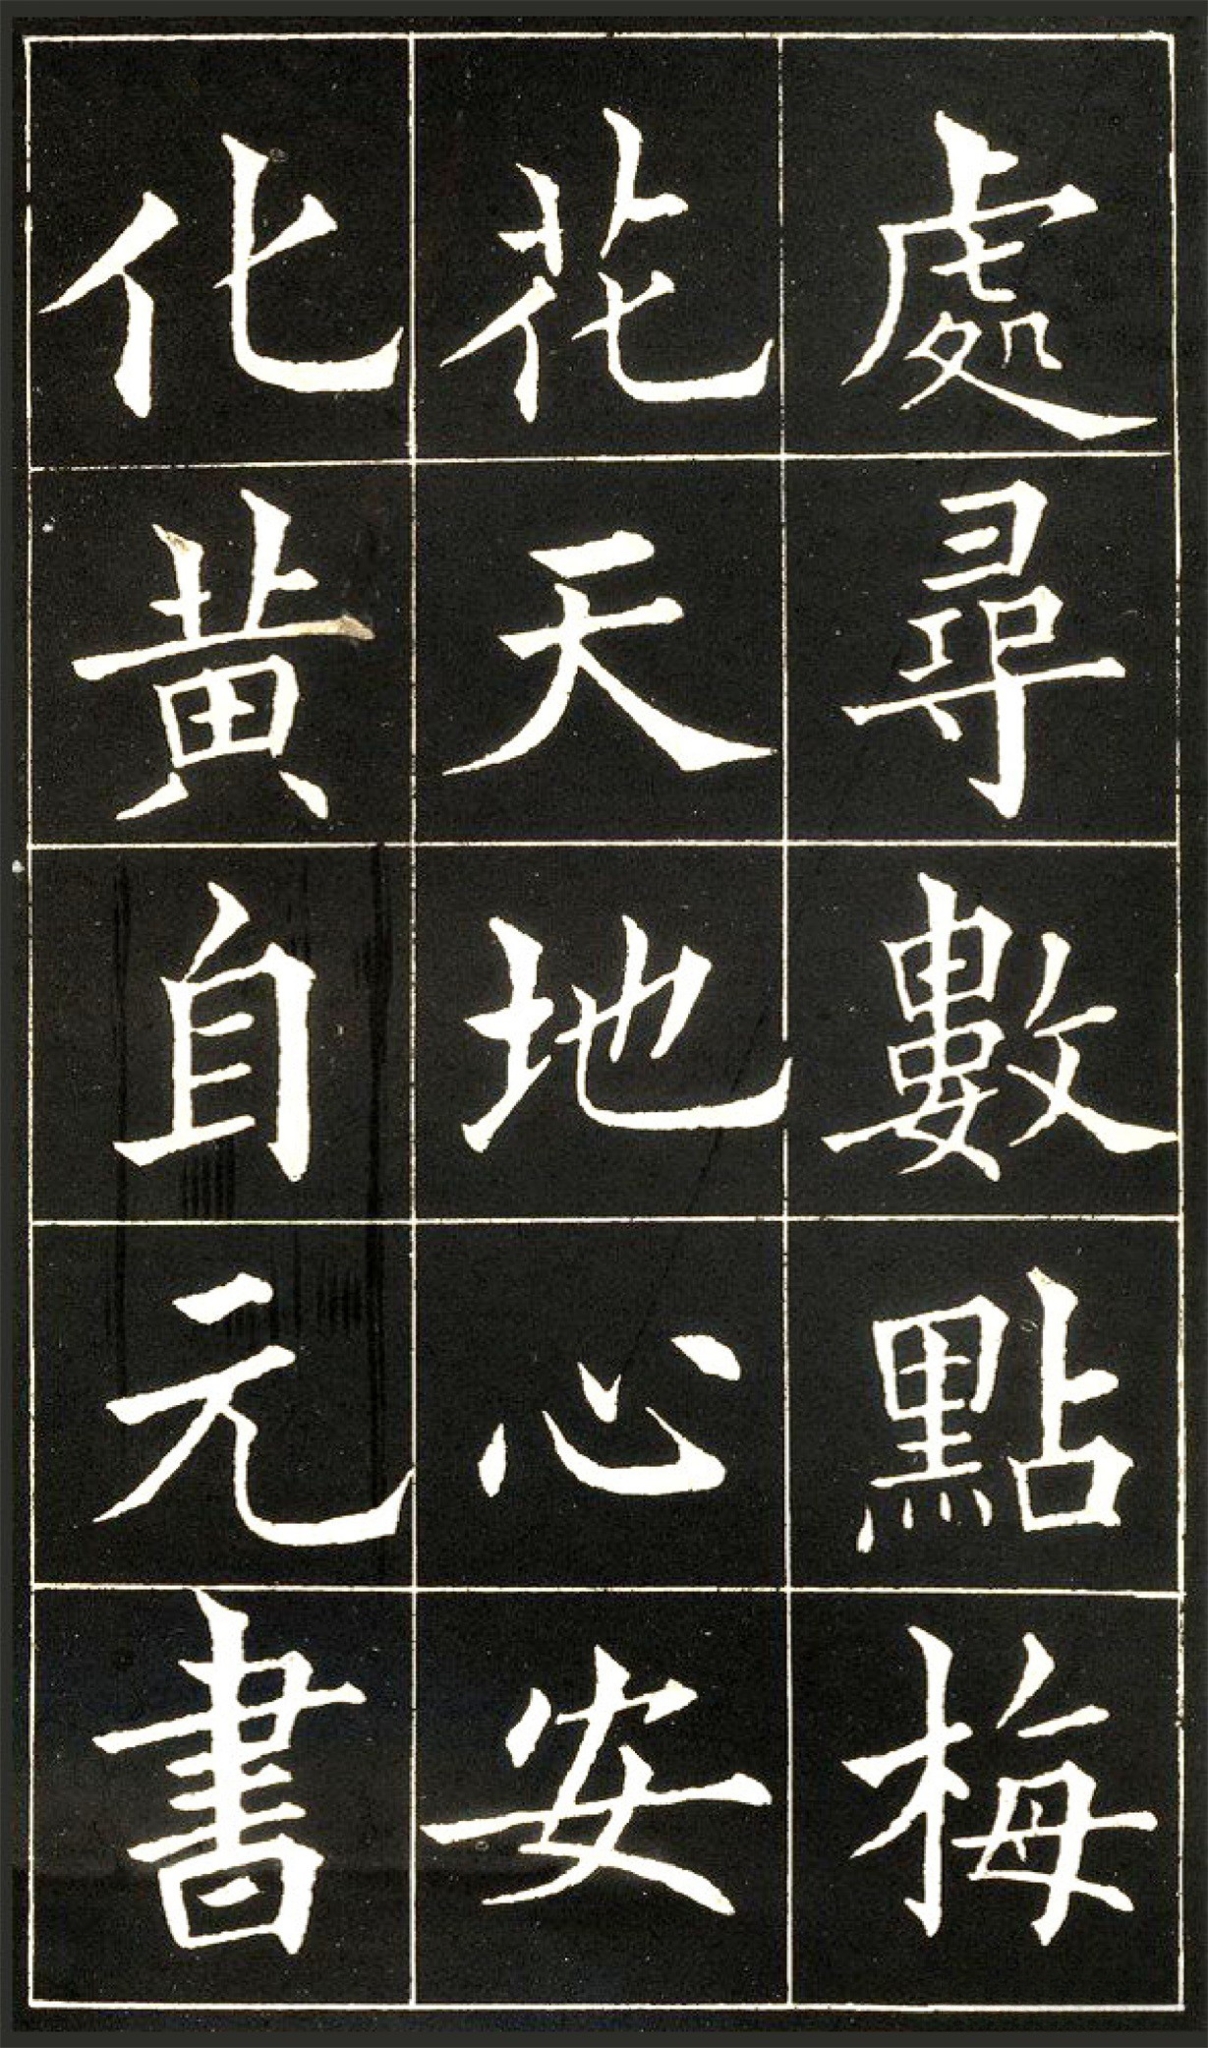 處尋數點梅
花天地心安
化黃自元書